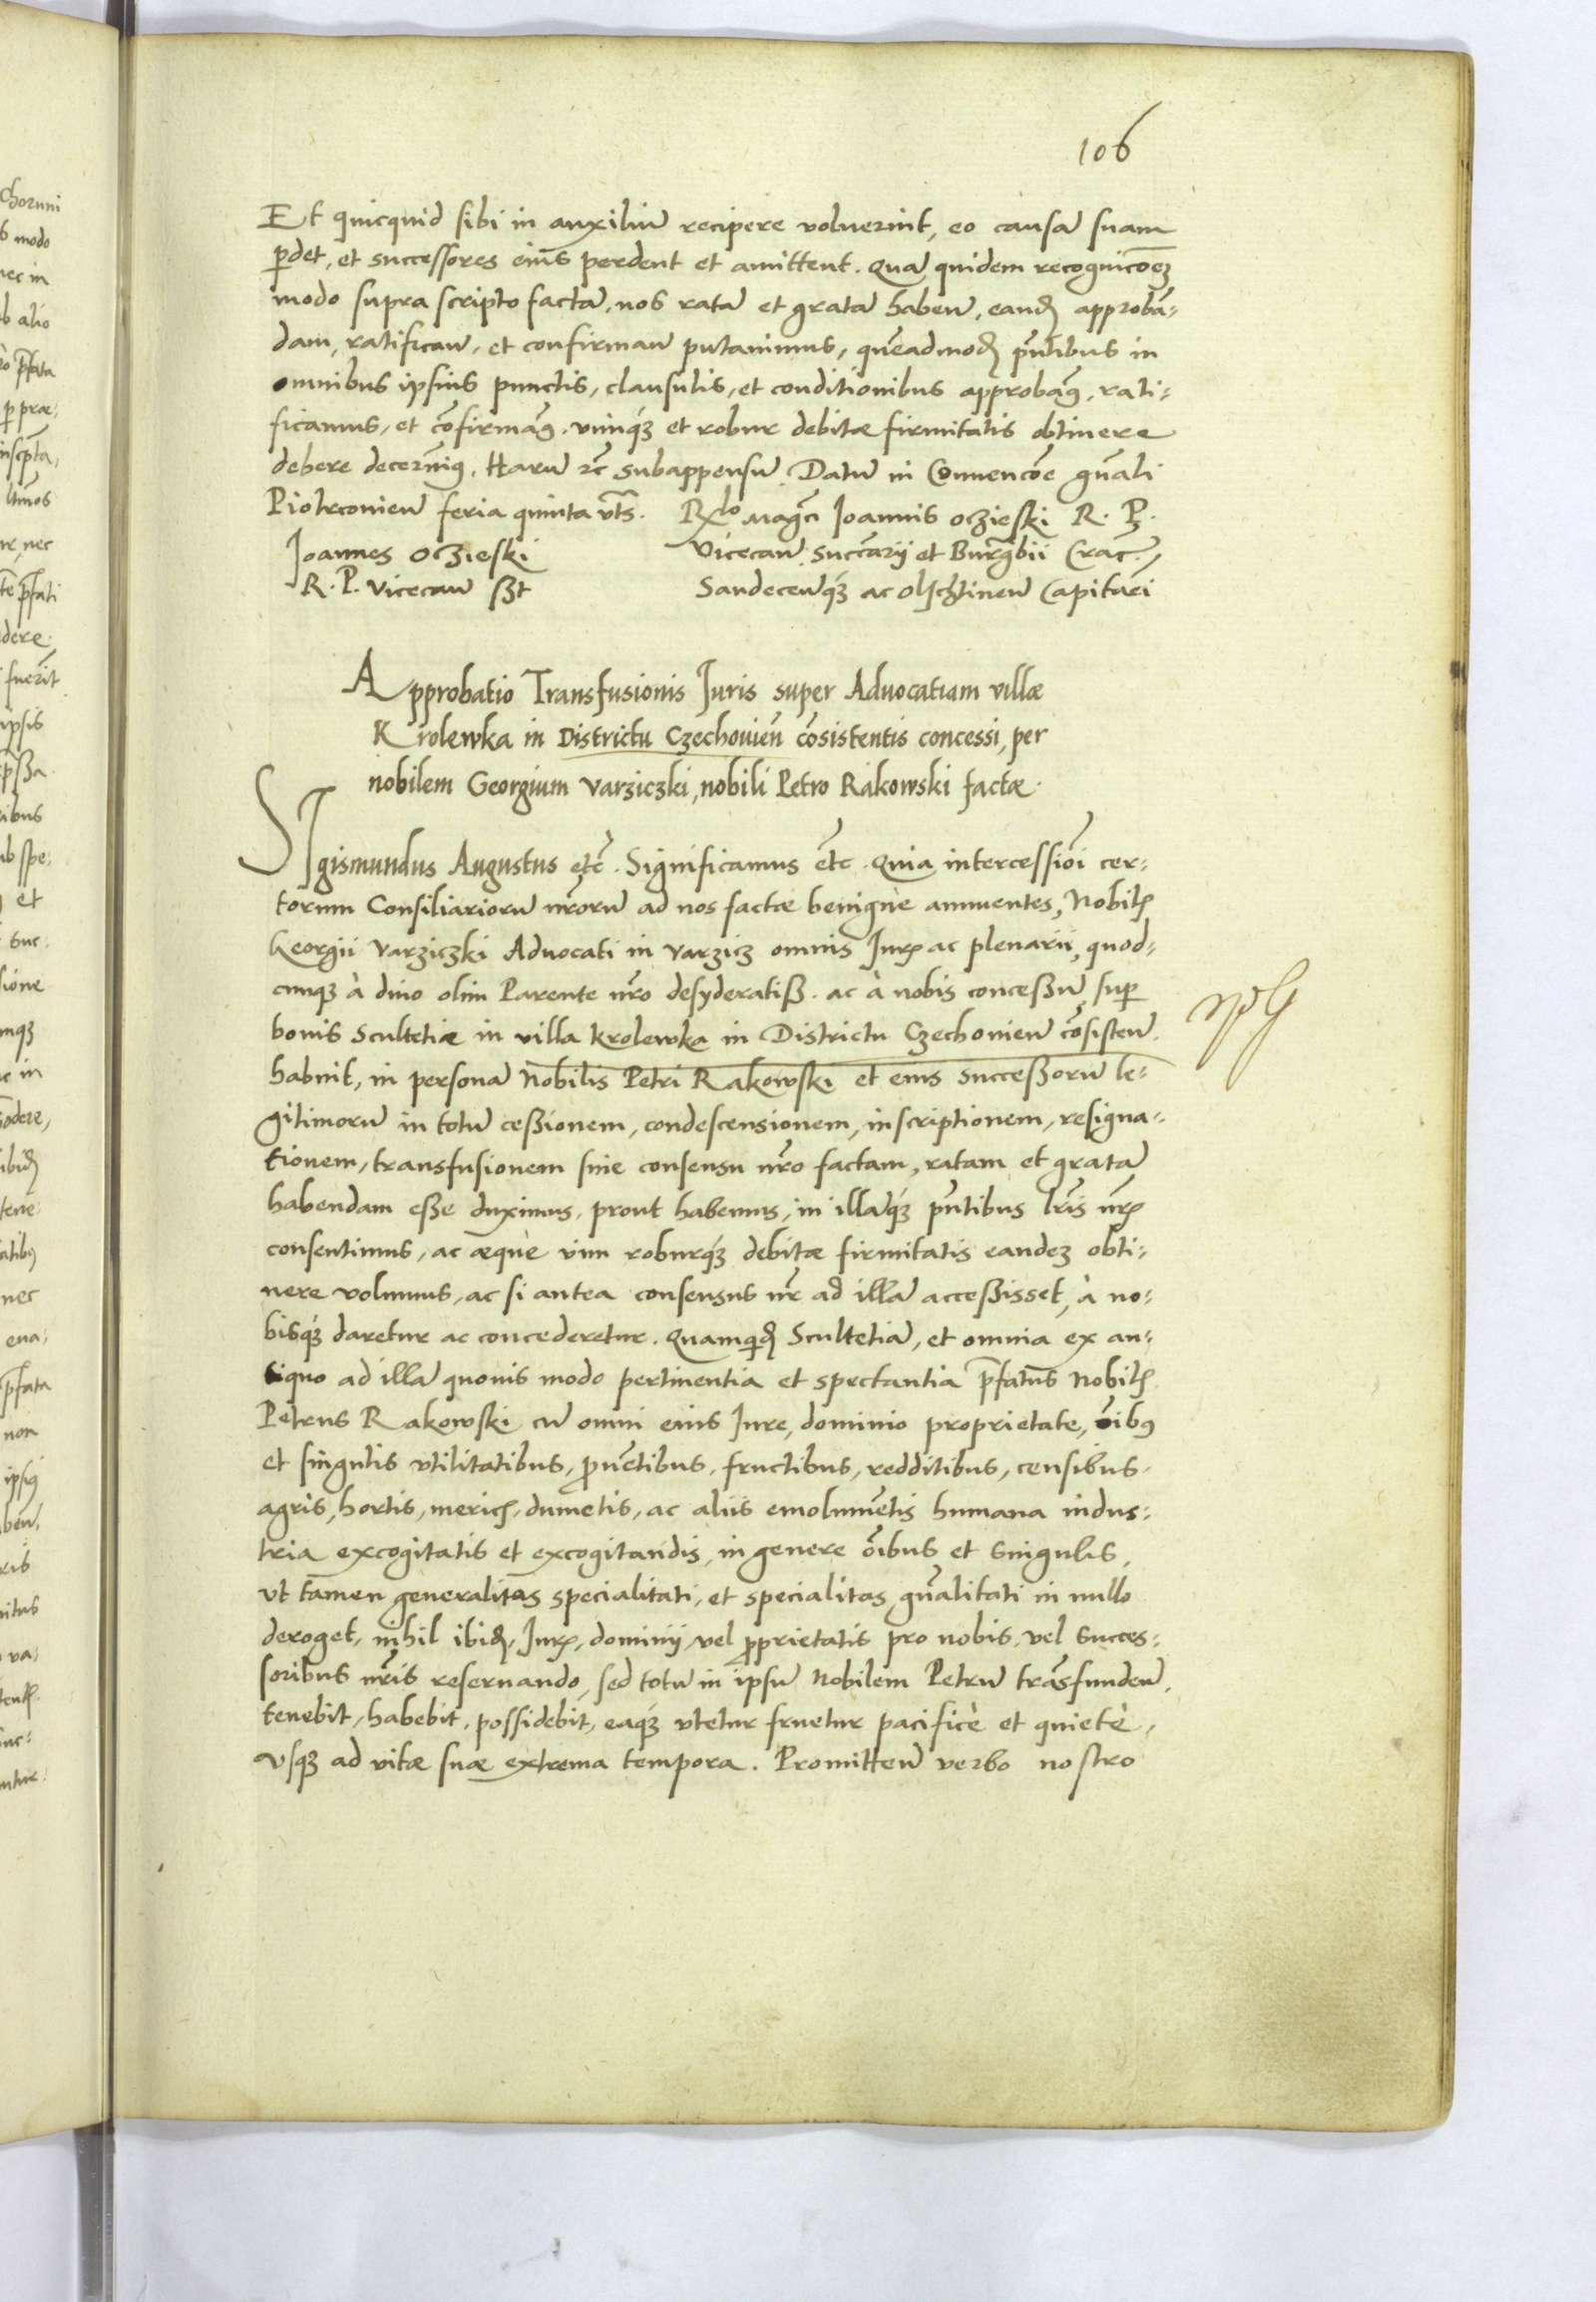 106
Et quicquid sibi in auxiliũ recipere voluerint, eo causã suam
p̱det, et successores eius perdent et amittent. Quã quidem recognicõez
modo supra scripto factã, nos ratã et gratã habeñ, eand approbã-
dam, ratificañ, et confirmañ putavimus, quẽadmod pñtibus in
omnibus ipsius punctis, clausulis, et conditionibus approbaꝰ, rati-
ficamus, et cõfirmaꝰ, vimqꝫ et robur debitæ firmitatis obtinere
debere decernĩꝰ. Harũ rc̃ subappensũ. Datũ in Convencõe gñali
Piotrconieñ feria quinta vts̃.
Joannes Oczieski
R. P. Vicecañ sszt
Rxlo Magci Joannis Oczieski R. P.
Vicecañ. Succarij et Burgbii Crac̃,
Sandeceñqꝫ ac Olschtineñ Capitãei
Approbatio Transfusionis Juris super Advocatiam villæ
Krolewka in Districtu Czechovieñ cõsistentis concessi, per
nobilem Georgium Varziczki, nobili Petro Rakowski factæ.
SIgismundus Augustus etc̃. Significamus etc̃. Quia intercessiõi cer-
torum Consiliariorũ nr̃orũ ad nos factæ benignè annuentes, Nobil
Georgii Varziczki Advocati in Varzicz omnis Jur ac plenarii, quod-
cunqꝫ à divo olim Parente nr̃o desyderatiß. ac à nobis conceßũ, sup̱
bonis Scultetiæ in villa Krolewka in Districtu Czechovieñ cõsisteñ.
habuit, in personã Nobilis Petri Rakowski et eius succeßorũ le-
gitimorũ in totũ ceßionem, condescensionem, inscriptionem, resigna-
tionem, transfusionem sine consensu nr̃o factam, ratam et gratã
habendam eße duximus, prout habemus, in illãqꝫ pñtibus lr̃is nr̃
consentimus, ac æquè vim roburqꝫ debitæ firmitatis eandez obti-
nere volumus, ac si antea consensus nr̃ ad illã acceßisset, à no-
bisqꝫ daretur ac concederetur. Quamquid Scultetiã, et omnia ex an-
tiquo ad illã quovis modo pertinentia et spectantia p̃fatus Nobil
Petrus Rakowski cũ omni eius Jure, dominio proprietate, õibꝰ
et singulis vtilitatibus, pvẽtibus, fructibus, redditibus, censibus,
agris, hortis, meric, dumetis, ac aliis emolumẽtis humana indus-
tria excogitatis et excogitandis, in genere õibus et singulis,
vt tamen generalitas specialitati, et specialitas gñalitati in nullo
deroget, nihil ibid, Jur, dominij, vel pprietatis pro nobis, vel succes-
soribus nr̃is reservando, sed totũ in ipsũ Nobilem Petrũ trãsfundeñ,
tenebit, habebit, possidebit, eaqꝫ vtetur fruetur pacificè et quietè,
vsqꝫ ad vitæ suæ extrema tempora. Promitteñ verbo nostro